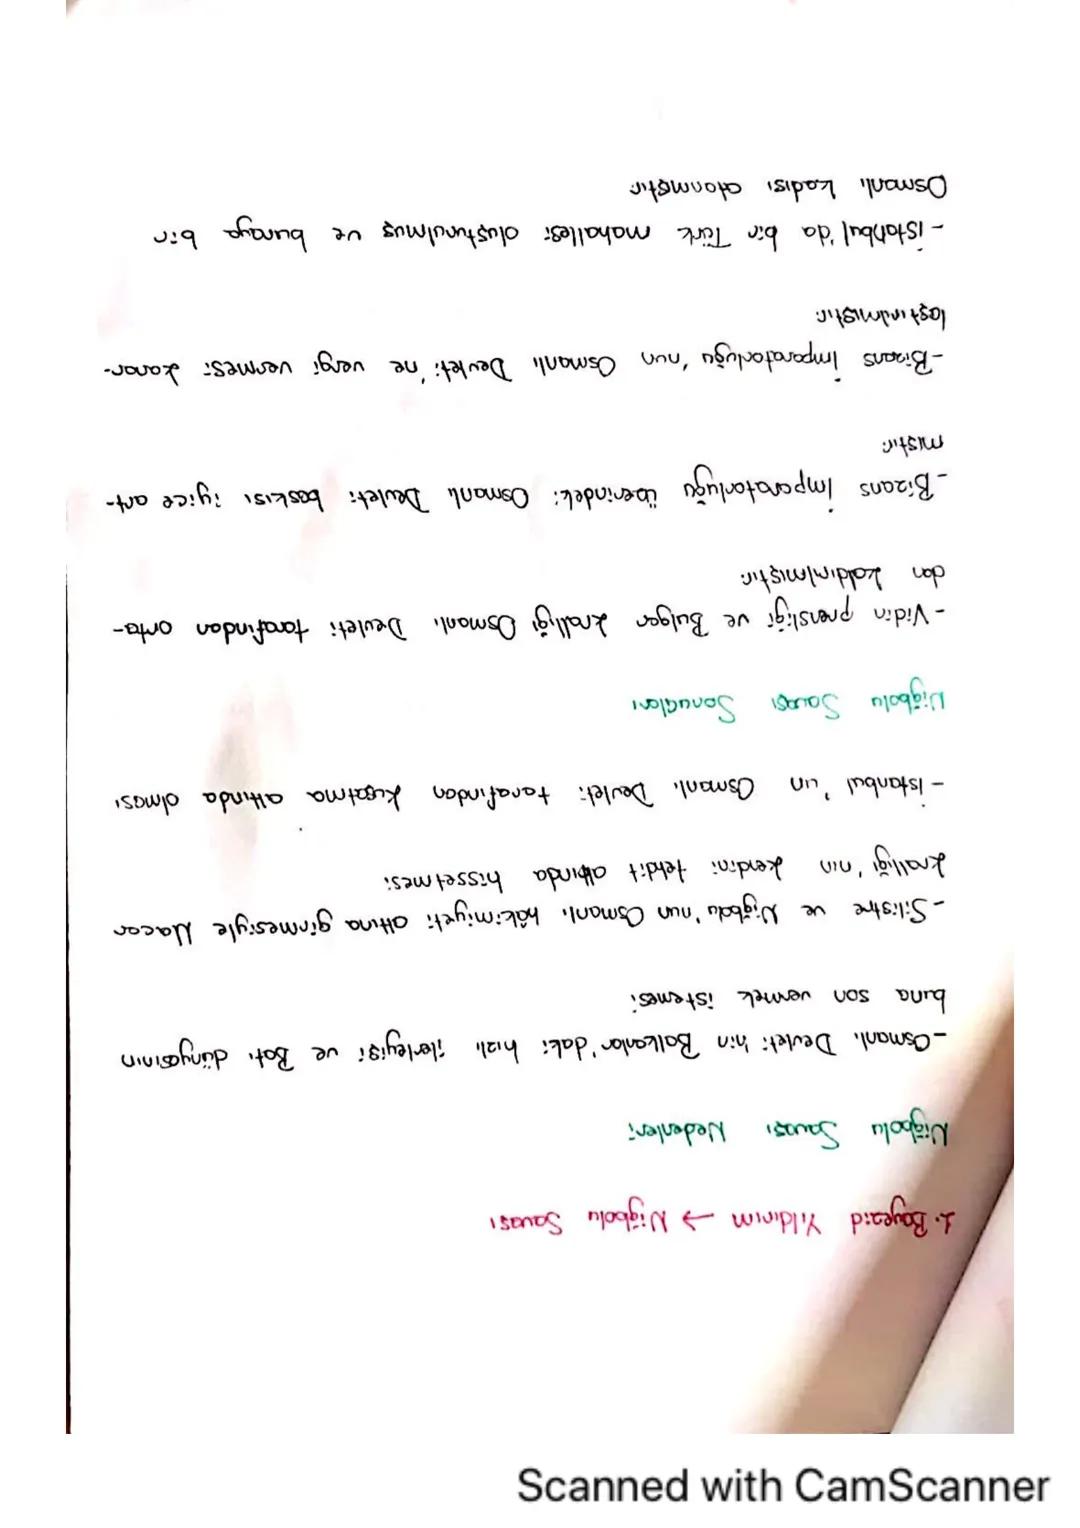 1. Bayezid Yıldırım → Niğbolu Savaşı
Niğbolu Savaşı Nedenleri
- Osmanlı Devleti'nin Balkanlar'daki hızlı ilerleyişi ve Batı dünyasının
buna son vermek istemesi
- Silistre ve Niğbolu'nun Osmanlı hâkimiyeti altına girmesiyle Macar
krallığı'nın kendini tehdit altında hissetmesi
- İstanbul'un Osmanlı Devleti tarafından kuşatma altında olması
Niğbolu Savaşı Sonuçları
- Vidin prensliği ve Bulgar krallığı Osmanlı Devleti tarafından orta-
dan kaldırılmıştır.
- Bizans İmparatorluğu üzerindeki Osmanlı Devleti baskısı iyice art-
mıştır.
- Bizans İmparatorluğu'nun Osmanlı Devleti'ne vergi vermesi karar-
laştırılmıştır.
- İstanbul'da bir Türk mahallesi oluşturulmuş ve buraya bir
Osmanlı kadısı atanmıştır.
Scanned with CamScanner